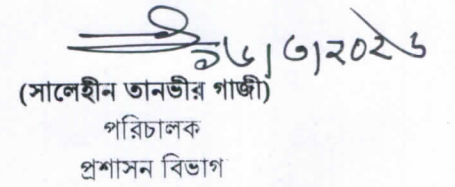 ১৬/৩/২০২৬
(সালেহীন তানভীর গাজী)
পরিচালক
প্রশাসন বিভাগ